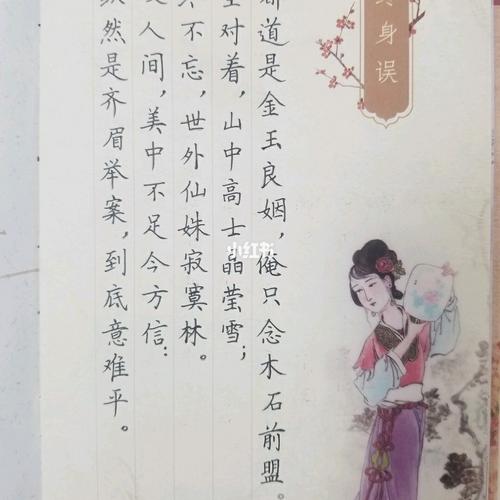 身误
都道是金玉良姻,俺只念木石前盟。
对着,山中高士晶莹雪;
不忘,世外仙姝寂寞林。
人间,美中不足今方信:
纵然是齐眉举案,到底意难平。
小红书